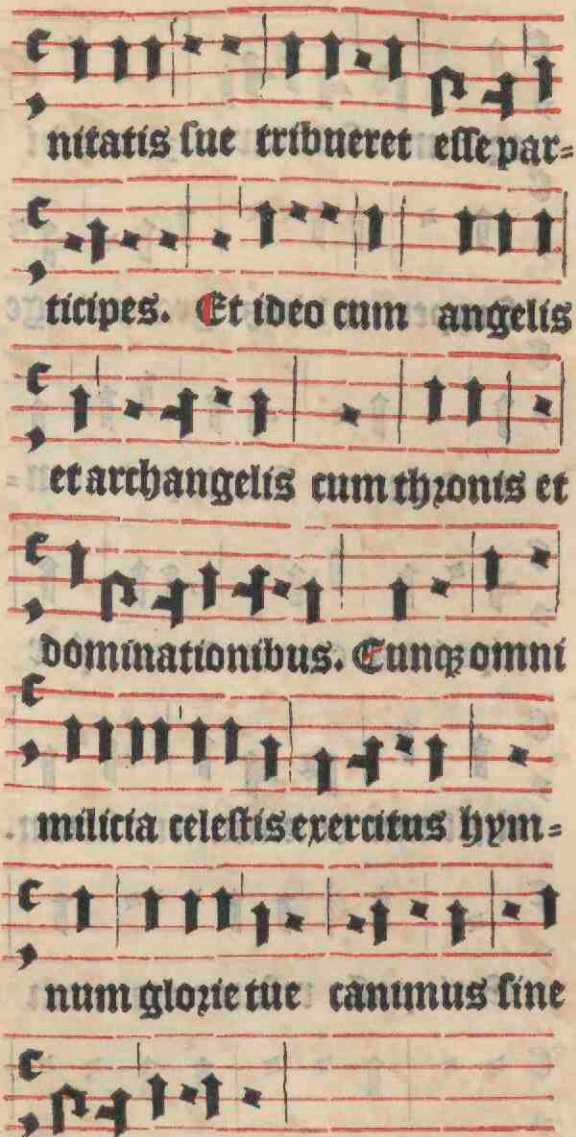 nitatis sue tribueret esse par=
ticipes. Et ideo cum angelis
et archangelis cum thronis et
dominationibus. Cunqꝫ omni
milicia celestis exercitus hym=
num glorie tue canimus sine